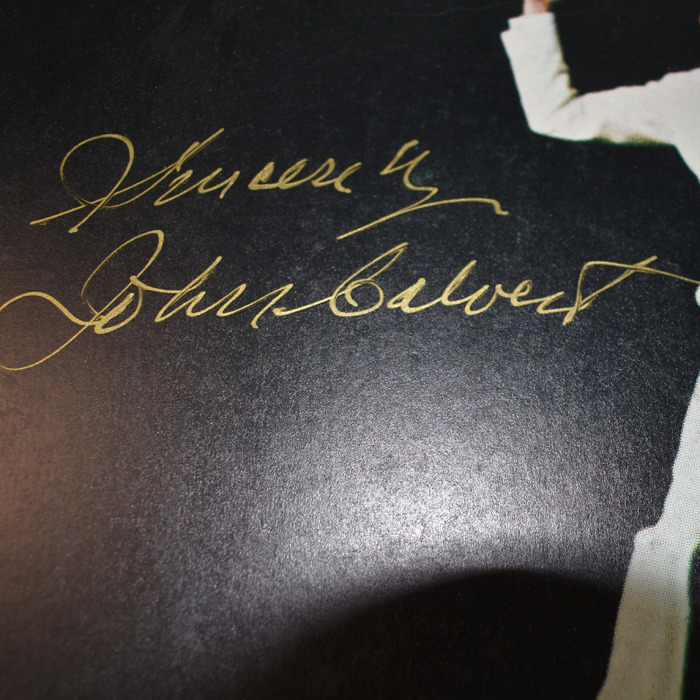 Sincerely
John Calvert